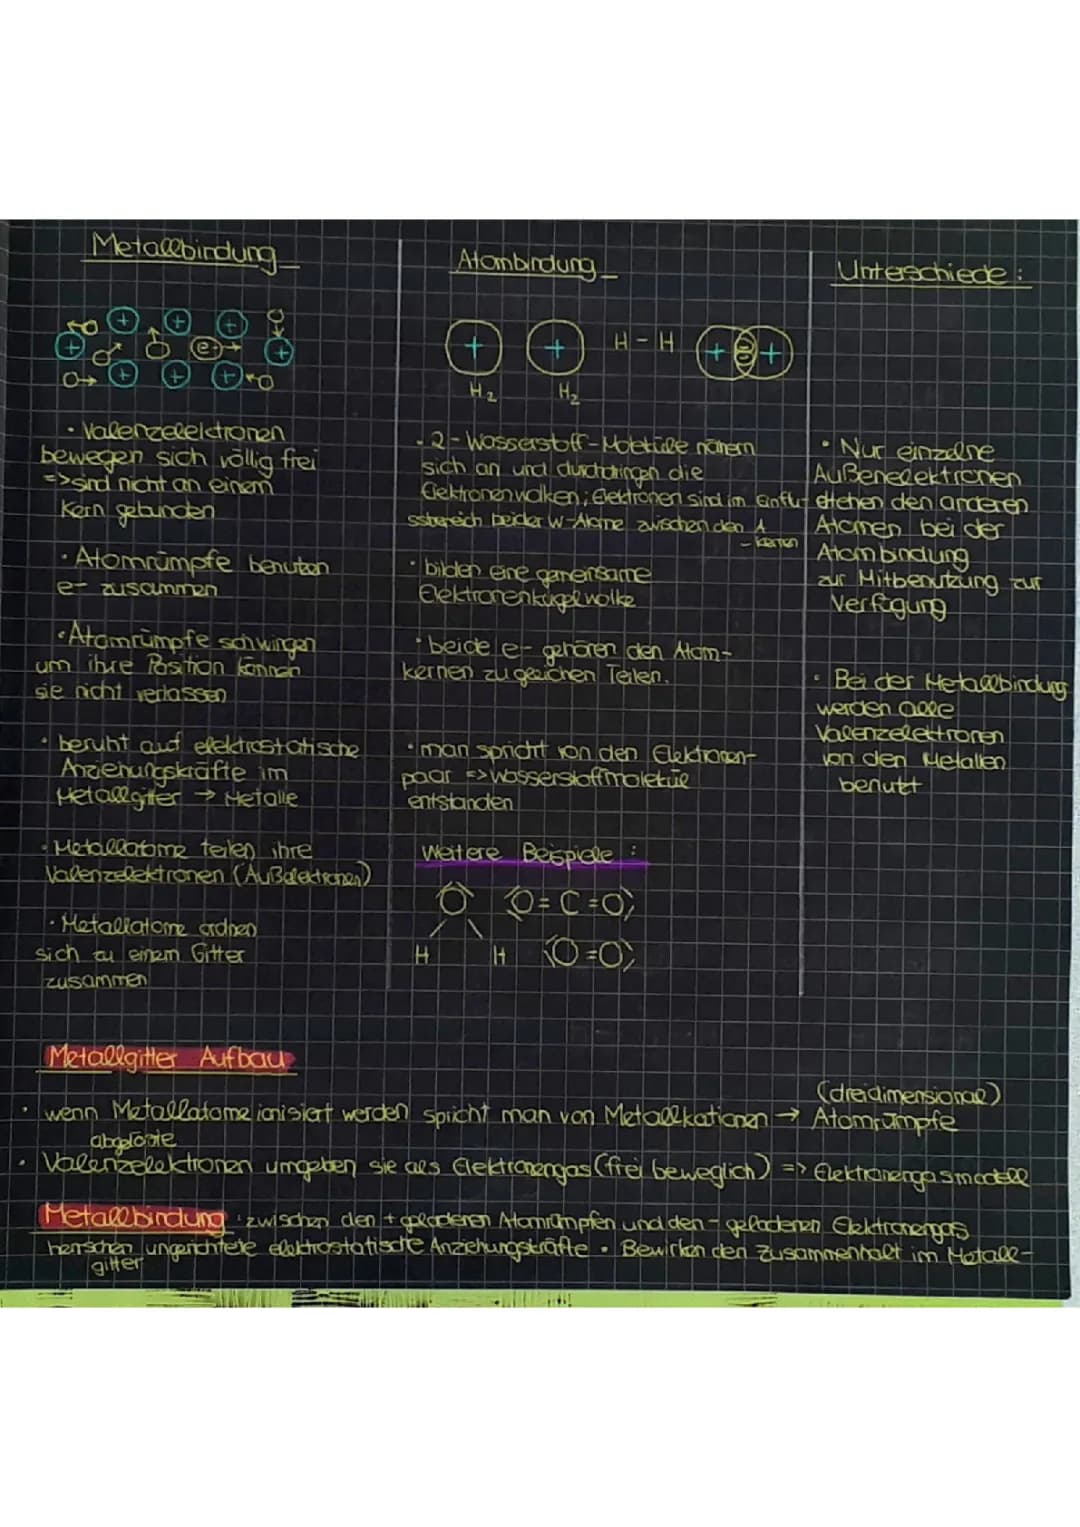 Metallbindung
+ + + + e- + + + +
• Valenzelektronen
bewegen sich völlig frei
=> sind nicht an einem
Kern gebunden
• Atomrümpfe benutzen
e- zusammen
• Atomrümpfe schwingen
um ihre Position können
sie nicht verlassen
• beruht auf elektrostatische
Anziehungskräfte im
Metallgitter → Metalle
• Metallatome teilen ihre
Valenzelektronen (Außelektronen)
• Metallatome ordnen
sich zu einem Gitter
zusammen
Atombindung
+ + H - H + +
H2 H2
• 2-Wasserstoff-Moleküle nähern
sich an und durchdringen die
Elektronenwolken; Elektronen sind im Einflu-
ssbereich beider W-Atome zwischen den A
-kernen
• bilden eine gemeinsame
Elektronenkugelwolke
• beide e- gehören den Atom-
kernen zu gleichen Teilen.
• man spricht von den Elektronen-
paar => Wasserstoffmoleküle
entstanden
Weitere Beispiele :
O O = C = O
H H O = O
Unterschiede :
• Nur einzelne
Außenelektronen
stehen den anderen
Atomen bei der
Atombindung
zur Mitbenutzung zur
Verfügung
• Bei der Metallbindung
werden alle
Valenzelektronen
von den Metallen
benutzt
Metallgitter Aufbau
(dreidimensional)
• wenn Metallatome ionisiert werden spricht man von Metallkationen → Atomrümpfe
abgelöste
• Valenzelektronen umgeben sie als Elektronengas (frei beweglich) => Elektronengasmodell
Metallbindung : zwischen den + geladenen Atomrümpfen und den - geladenen Elektronengas
herrschen ungerichtete elektrostatische Anziehungskräfte • Bewirken den Zusammenhalt im Metall-
gitter